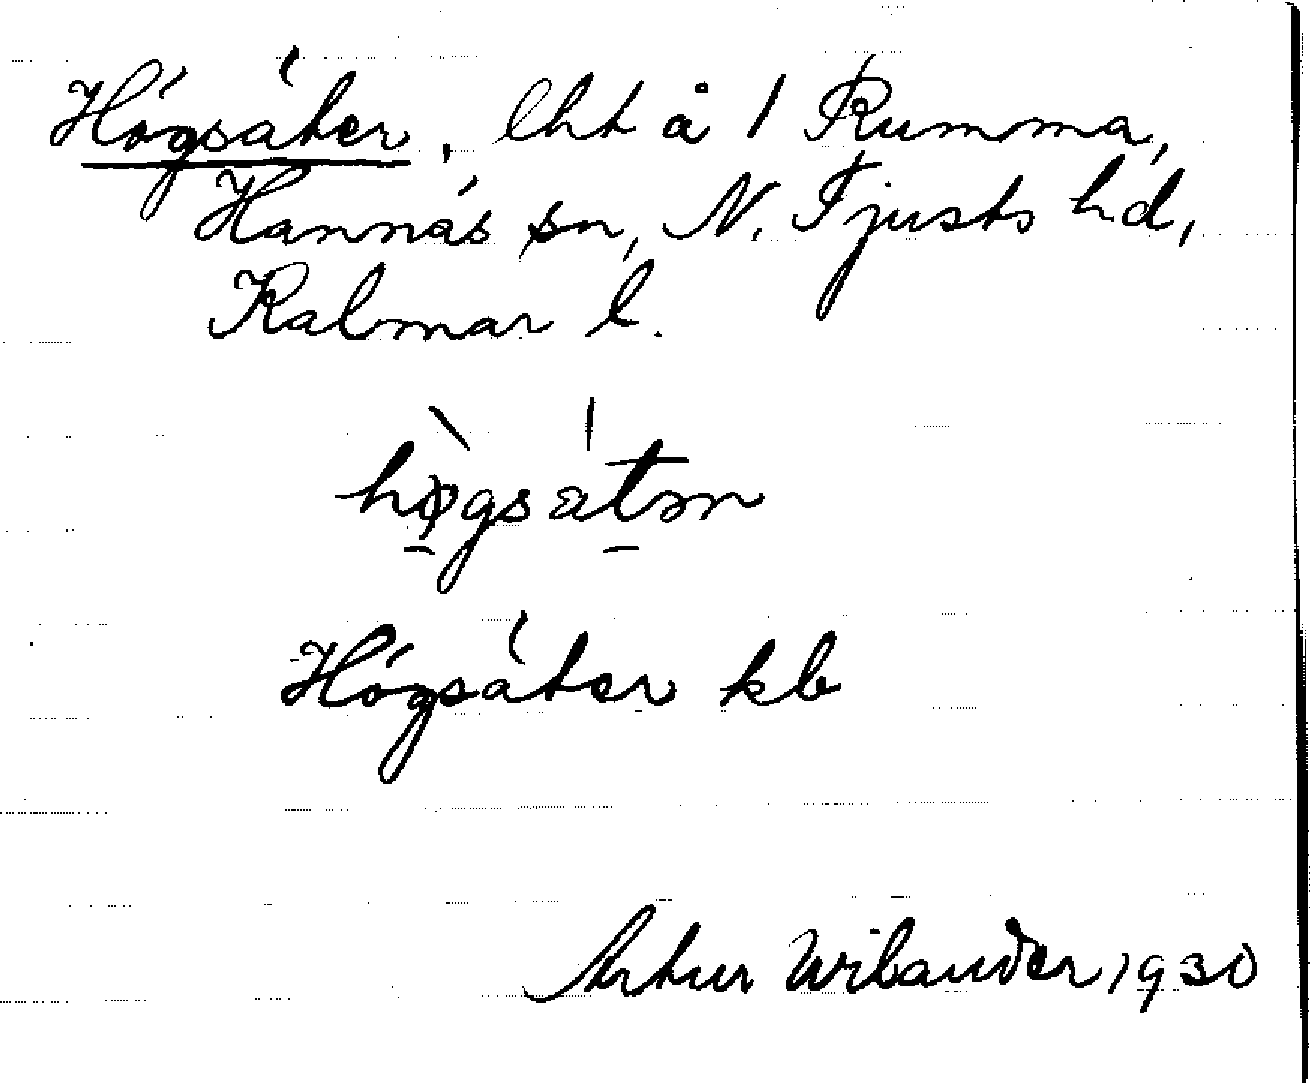 Högsäter, lht å 1 Rumma,
Hannäs sn, N. Tjusts hd,
Kalmar l.
Högsäter kb
Artur Wilander 1930